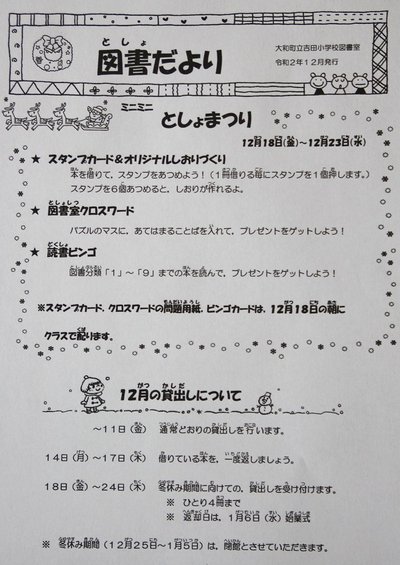 図書だより
大和町立吉田小学校図書室
令和2年12月発行
ミニミニ
としょまつり
12月18日(金)～12月23日(水)
★ スタンプカード＆オリジナルしおりづくり
本を借りて、スタンプをあつめよう！(1冊借りる毎にスタンプを1個押します。)
スタンプを6個あつめると、しおりが作れるよ。
★ 図書室クロスワード
パズルのマスに、あてはまることばを入れて、プレゼントをゲットしよう！
★ 読書ビンゴ
図書分類「1」～「9」までの本を読んで、プレゼントをゲットしよう！
※スタンプカード、クロスワードの問題用紙、ビンゴカードは、12月18日の朝に
クラスで配ります。
12月の貸出しについて
～11日(金) 通常どおりの貸出しを行います。
14日(月)～17日(木) 借りている本を、一度返しましょう。
18日(金)～24日(木) 冬休み期間に向けての、貸出しを受け付けます。
※ ひとり4冊まで
※ 返却日は、1月6日(水)始業式
※ 冬休み期間(12月25日～1月5日)は、閉館とさせていただきます。